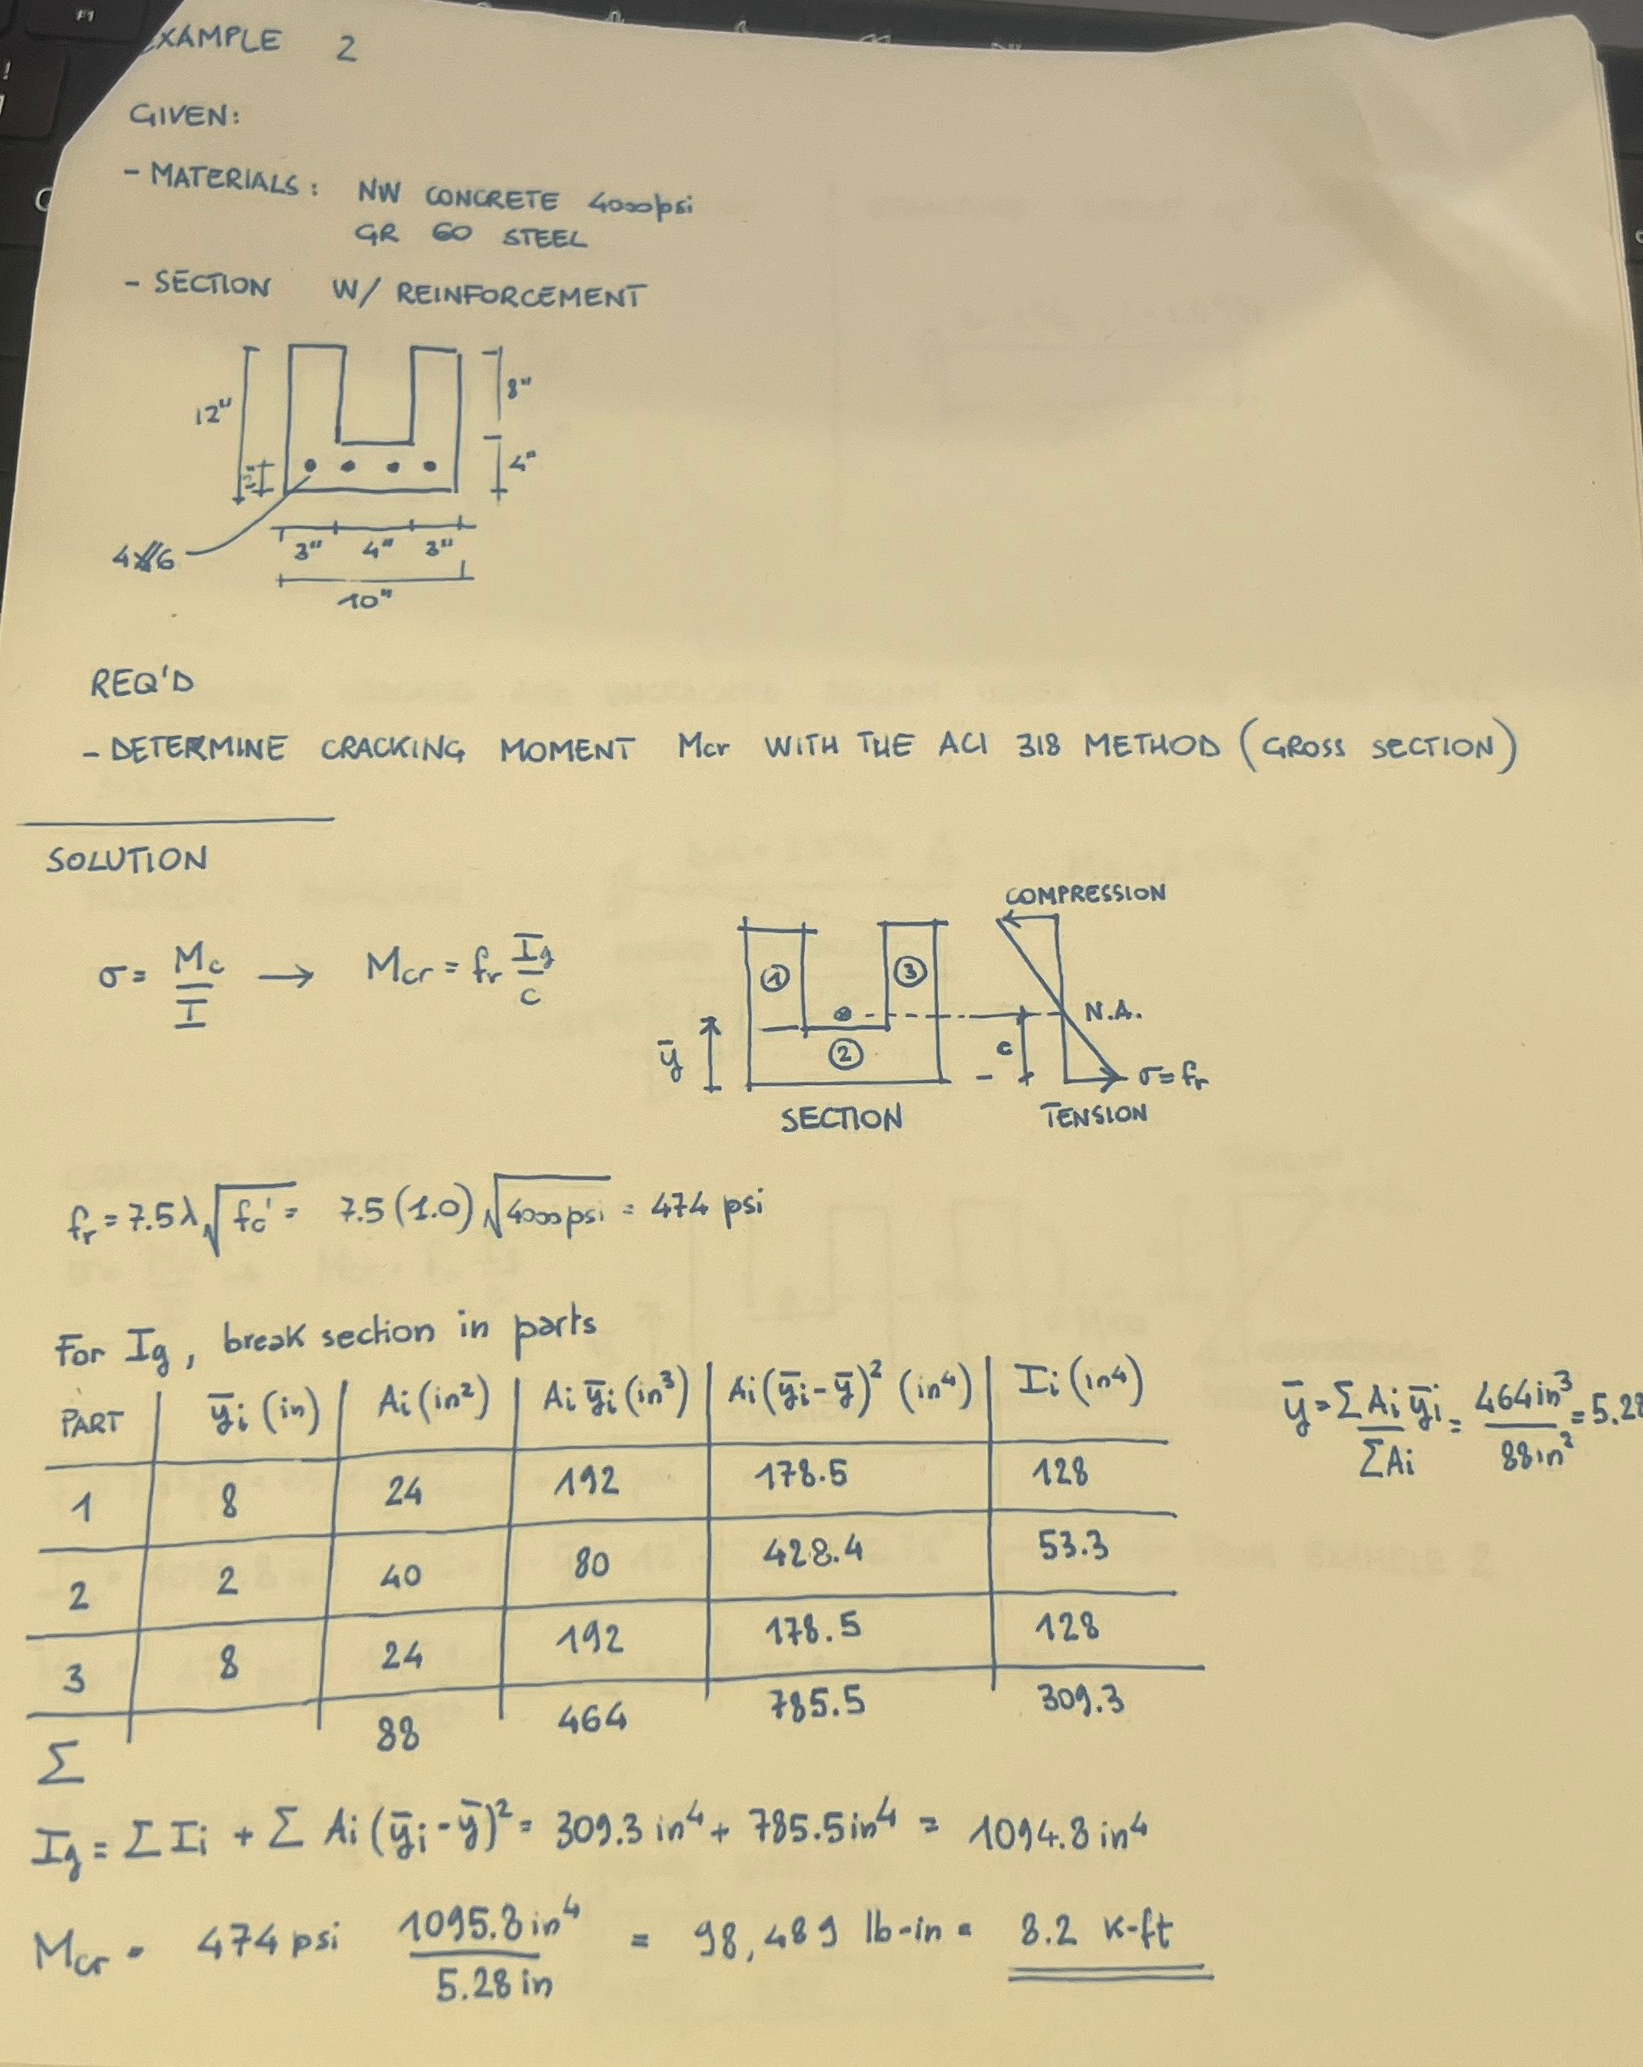 EXAMPLE 2
GIVEN:
- MATERIALS: NW CONCRETE 4000psi
GR 60 STEEL
- SECTION W/ REINFORCEMENT
12" 8"
4"
4#6 3" 4" 3"
10"
REQ'D
- DETERMINE CRACKING MOMENT Mcr WITH THE ACI 318 METHOD (GROSS SECTION)
SOLUTION
σ = Mc/I → Mcr = fr Ig/c
COMPRESSION
① ③
N.A.
ȳ ② c
σ = fr
SECTION TENSION
fr = 7.5λ√fc' = 7.5 (1.0) √4000psi = 474 psi
For Ig, break section in parts
PART ȳi (in) Ai (in²) Ai ȳi (in³) Ai(ȳi-ȳ)² (in⁴) Ii (in⁴)
ȳ = ΣAi ȳi/ΣAi = 464in³/88in² = 5.28
1 8 24 192 178.5 128
2 2 40 80 428.4 53.3
3 8 24 192 178.5 128
Σ 88 464 785.5 309.3
Ig = Σ Ii + Σ Ai (ȳi-ȳ)² = 309.3 in⁴ + 785.5in⁴ = 1094.8 in⁴
Mcr = 474 psi 1095.8in⁴/5.28 in = 98,489 lb-in = 8.2 K-ft